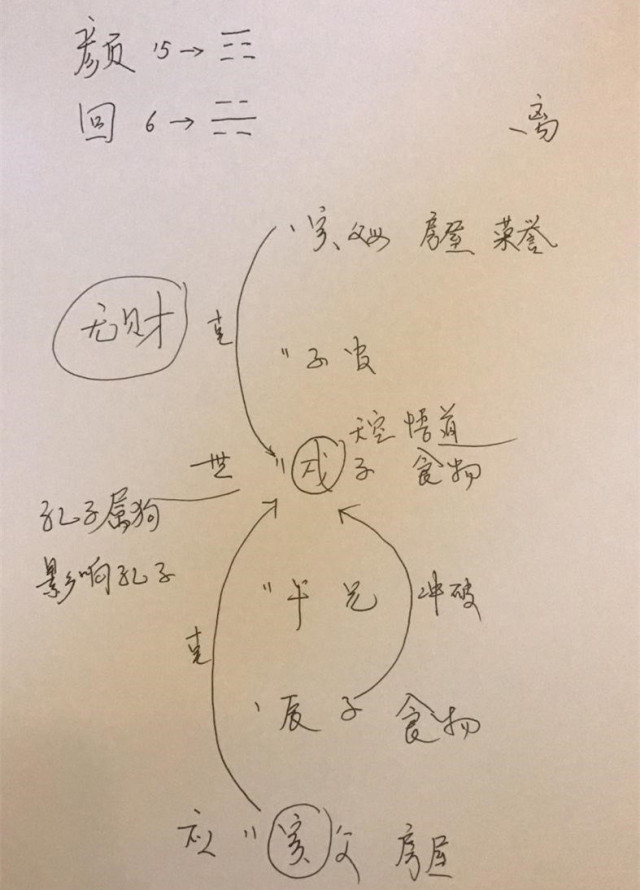 颜 15→ ☶
回 6→ ☵
离
、寅 父母 房屋 荣誉
无财
克
〃 子 官
天空 悟道
世 〃 戌 子 食物
孔子属狗
影响孔子
〃 午 兄 冲破
克
、辰 子 食物
应 〃 寅 父 房屋